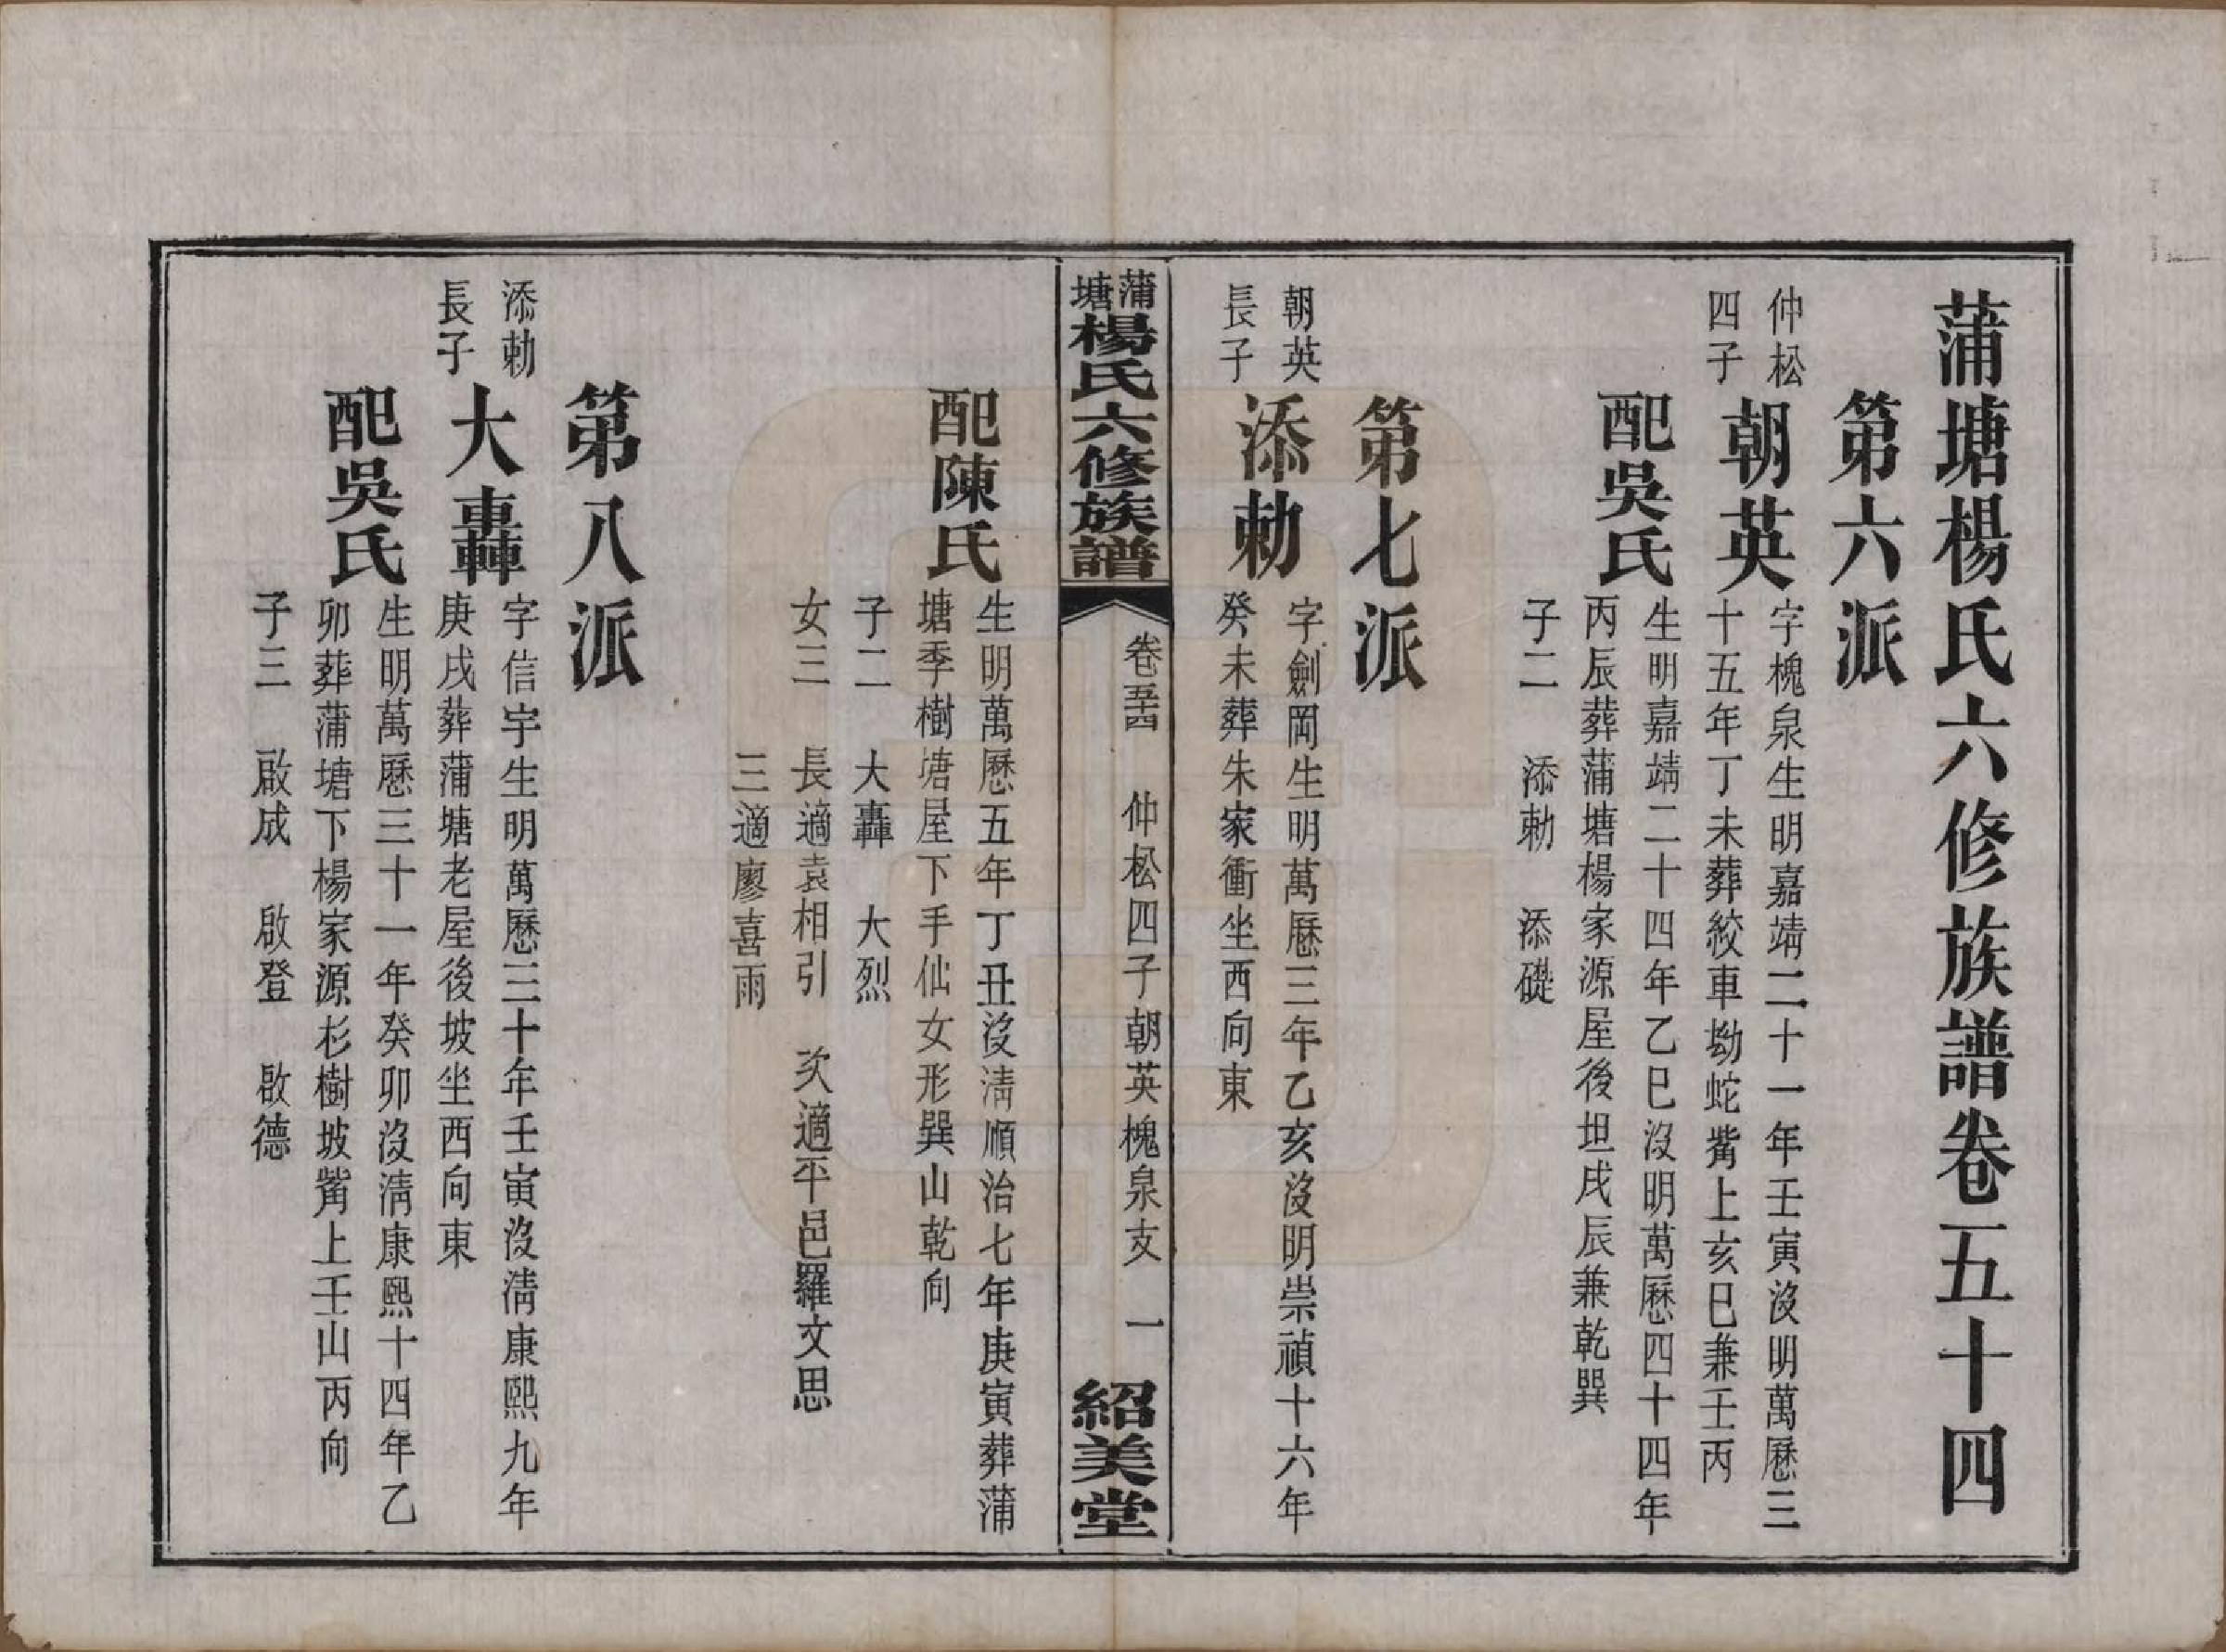 蒲塘楊氏六修族譜卷五十四
第六派
仲松
四子
朝英
字槐泉生明嘉靖二十一年壬寅沒明萬曆三
十五年丁未葬絞車坳蛇觜上亥巳兼壬丙
配吳氏
生明嘉靖二十四年乙巳沒明萬曆四十四年
丙辰葬蒲塘楊家源屋後坦戌辰兼乾巽
子二　添勅　添磋
第七派
朝英
長子
添勅
字劍岡生明萬曆三年乙亥沒明崇禎十六年
癸未葬朱家衝坐西向東
蒲塘楊氏六修族譜
卷五十四　仲松四子朝英槐泉支　一
紹美堂
配陳氏
生明萬曆五年丁丑沒清順治七年庚寅葬蒲
塘季樹塘屋下手仙女形巽山乾向
子二　大轟　大烈
女三　長適袁相引　次適平邑羅文思
三適廖喜雨
第八派
添勅
長子
大轟
字信宇生明萬曆三十年壬寅沒清康熙九年
庚戌葬蒲塘老屋後坡坐西向東
配吳氏
生明萬曆三十一年癸卯沒清康熙十四年乙
卯葬蒲塘下楊家源杉樹坡觜上壬山丙向
子三　啟成　啟登　啟德